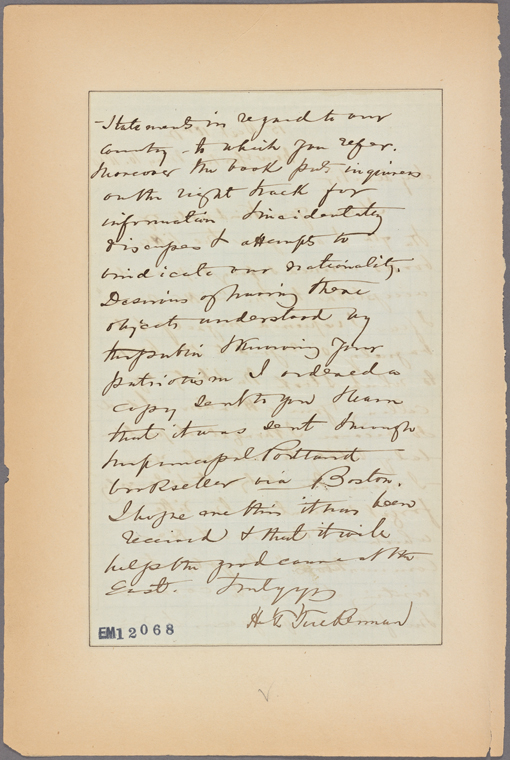 -Statements in regard to our
country - to which you refer.
Moreover the book puts inquirers
on the right track for
information & incidentally
discusses & attempts to
vindicate our nationality.
Desirous of having these
objects understood by
the public & knowing your
patriotism I ordered a
copy sent to you & learn
that it was sent through
the principal Portland
bookseller via Boston.
I hope ere this it has been
received & that it will
help the good cause at the
East. Truly yrs
H T Tuckerman
EM12068